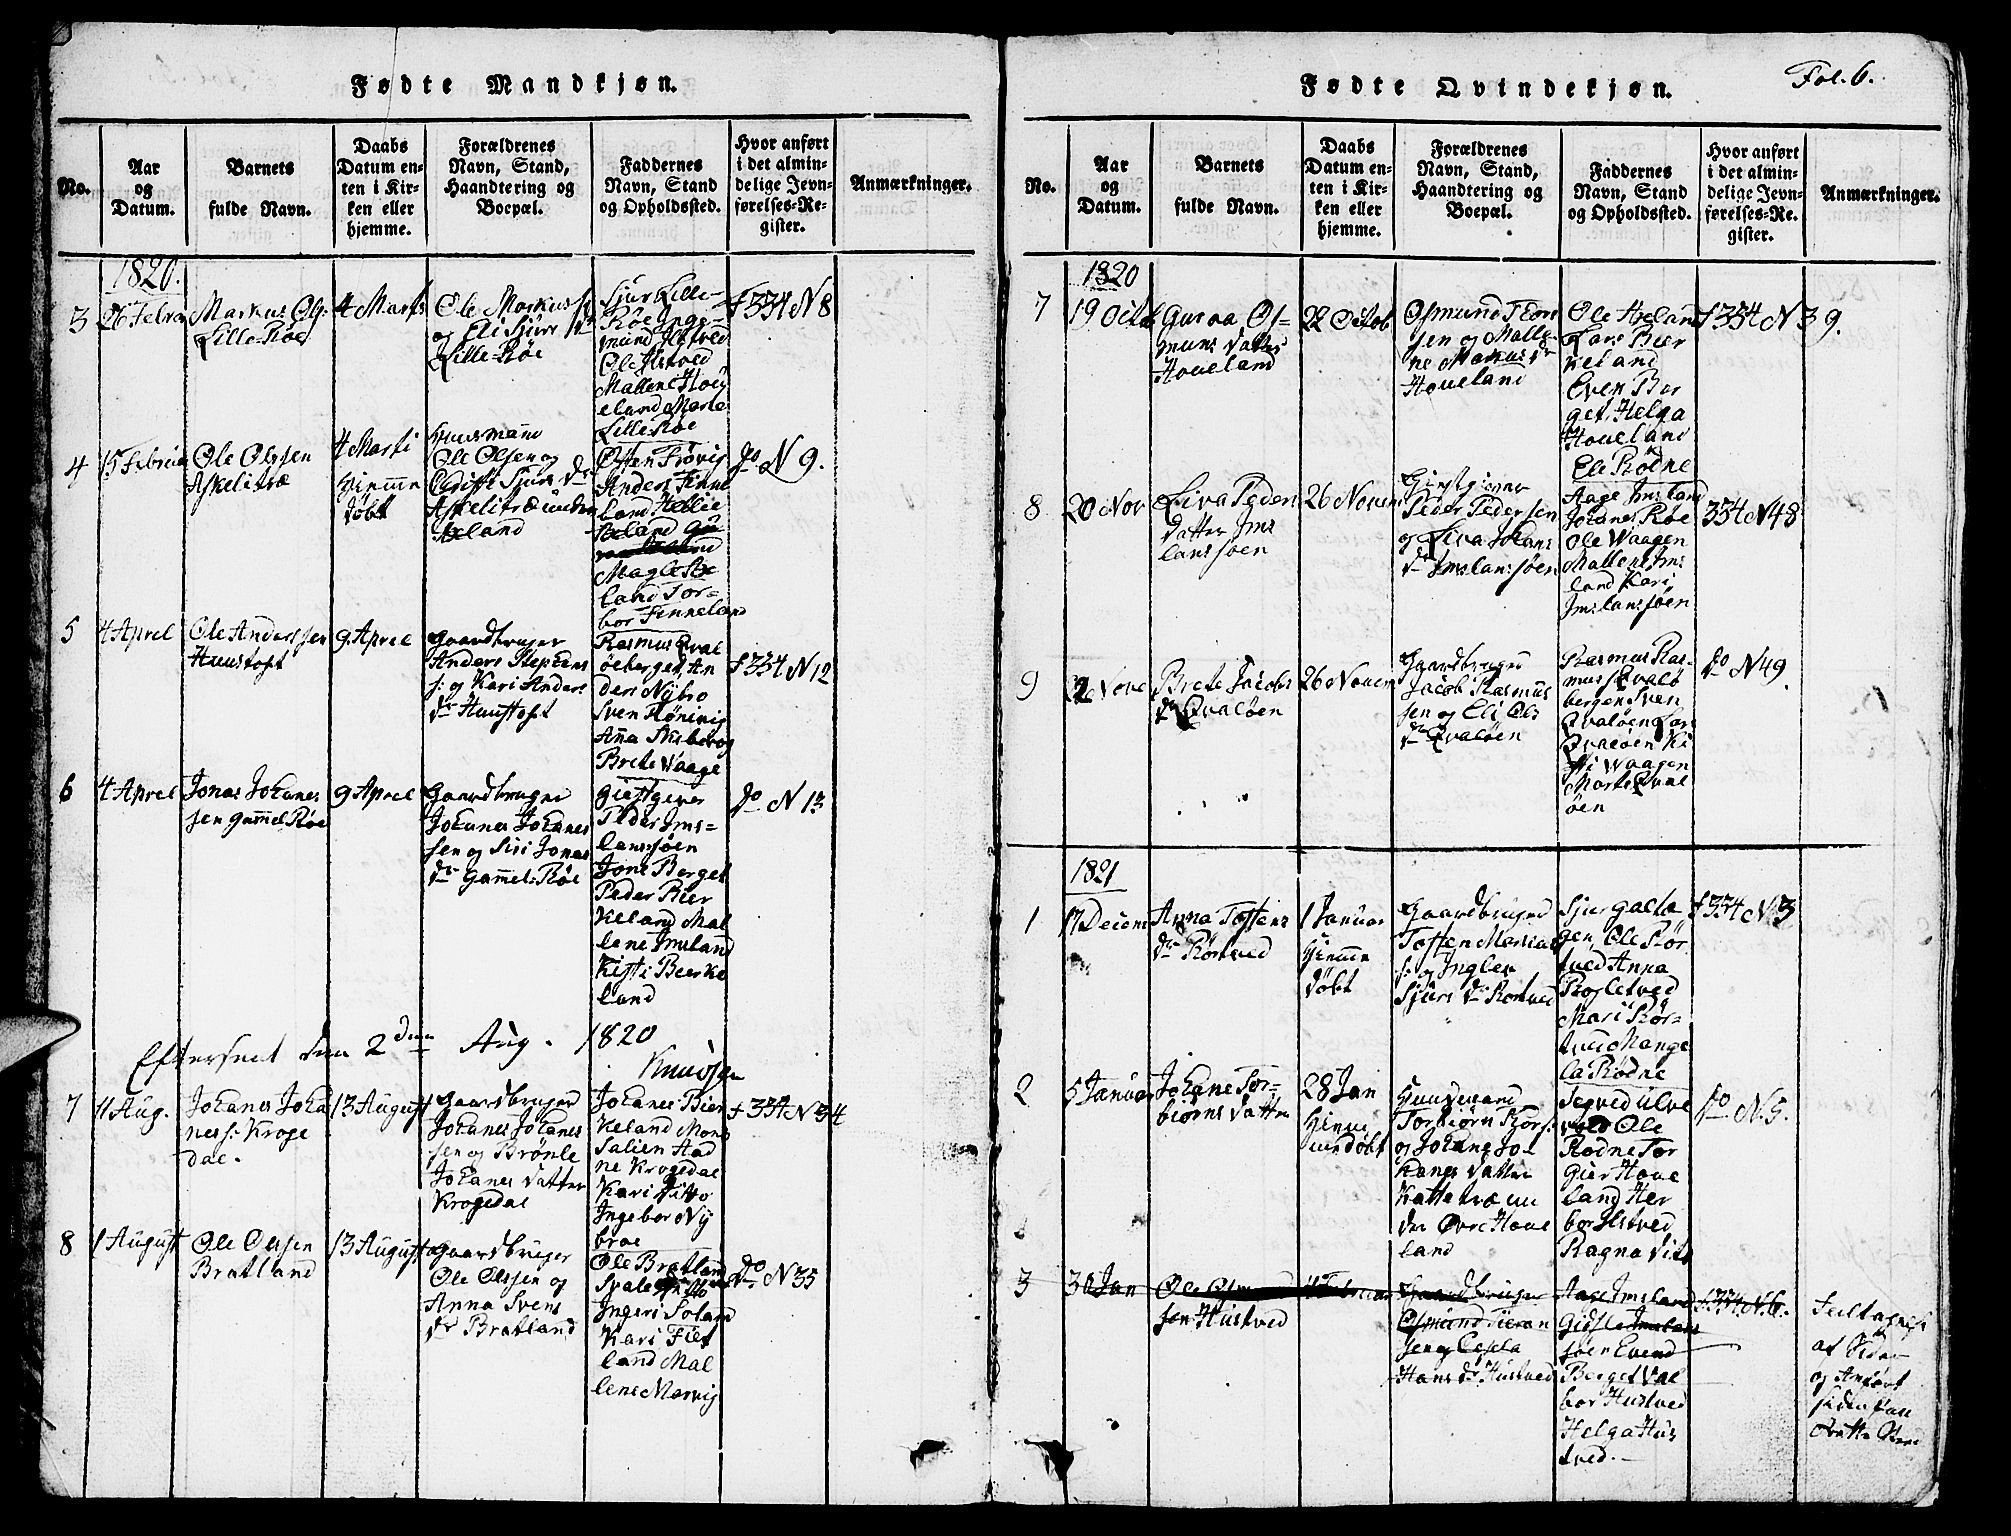 Fødte Mandkjøn.
No.
Aar
og
Datum.
Barnets
fulde Navn.
Daabs
Datum en-
ten i Kir-
ken eller
hjemme.
Forældrenes
Navn, Stand,
Haandtering og
Boepæl.
Faddernes
Navn, Stand
og Opholdssted.
Hvor anført
i det almin-
delige Jevn-
førelses-Re-
gister.
Anmærkninger.
1820.
3
26 Febra
Markus Ols:
Lille Røe
4 Marts
Ole Markuss
og Eli Sjurs dr
Lille-Røe
Sjur Lille-
Røe Inge-
mund Ilstved
Ole Ilstved
Mallene Høig
eland Marte
Lille Røe
f 334 N 8
4
15 Februa
Ole Olssen
Askelitræ
4 Marti
Hiemme
døbt
Huusmand
Ole Olsen og
Sjurs dr
Askelitræ under
Østen Frøvig
Anders Finne
land
land
Magle
land Tor-
bor Finneland
do N 9.
5
4 Aprel
Ole Anderssen
Haustoft
9 Aprel
Gaardbruger
Anders Stephens
s: og Kari Anders
dr Haustoft
Rasmus Qval
øeberget, An
ders Nybro
Sven Rønevig
Anna
Brete Waage
f 334 N 12
6
4 Aprel
Jonas Johanes
sen Gammel Røe
9 Aprel
Gaardbruger
Johanes Johanes
sen og Siri Jonas
dr Gammel-Røe
Giestgiver
Peder Ims-
lanssøen
Jone Berget
Peder Bier
keland Mal
lene Imsland
Kisti Beerke
land
do N 13
Efterseet den 2den Aug. 1820
Knudsen
7
11 Aug.
Johanes Joha
ness: Kroge
dal.
13 August
Gaardbruger
Johanes Johanes
sen og Brønle
Johanes datter
Krogedal
Johanes Bier
keland Mons
Salien Aad
ne Krogedal
Kari ditto
Ingebor Ny
broe
f 334 N 34
8
1 August
Ole Olssen
Bratland
13 August
Gaardbruger
Ole Olssen og
Anna Svens
dr Bratland
Ole Bratland
Svale
Ingeri
Kari Fiet
land Mal
lene Marvig
do N 35
Fødte Qvindekjøn.
Fol. 6.
No.
Aar
og
Datum.
Barnets
fulde Navn.
Daabs
Datum en-
ten i Kir-
ken eller
hjemme.
Forældrenes
Navn, Stand,
Haandtering og
Boepæl.
Faddernes
Navn, Stand
og Opholdssted.
Hvor anført
i det almin-
delige Jevn-
førelses-Re-
gister.
Anmærkninger.
1820
7
19 Octob
Guroa Os-
muns datter
Hoveland
22 Octob
Osmund Thors
sen og Malle-
ne Markus dr
Hoveland
Ole Axeland
Lars Bier
keland
Even Ber
get, Helga
Hoveland
Eli Rødne
f 334 N 39.
8
20 Nov
Liva Peders
datter Ims
lanssøen
26 Novem
Giestgiver
Peder Pedersen
og Liva Johans
dr Imslanssøen
Aage Imsland
Johanes Røe
Ole Waagen
Mallene Ims
land Kari
Imslanssøen
334 N 48
9
Nove
Brete Jacobs
dr Qvaløen
26 Novem
Gaardbruger
Jacob Rasmus
sen og Eli Ols
dr Qvaløen
Rasmus Ras-
mus Qvalø
bergen Sven
Qvaløen Lars
Qvaløen Ki
sti Waagen
Marte Qval
øen
do N 49.
1821
1
17 Decem
Anna Tostens
dr Rørtved
1 Januar
Hiemme
døbt
Gaardbruger
Tosten
s: og Ingler
Sjurs dr Rørtved
Sjur Galta
gen, Ole Rør
tved Anna
Rogletved
Mari Rør-
tved Mange
la Rødne
f 334 N 3
2
5 Januar
Johane Tor-
biørns datter
28 Jan
Hiemme
døbt
Huusmand
Torbiørn Thors:
og Johane Jo-
hanes datter
Kattetræ un
der Øvre Hove
land
Segved Ulve
Ole
Rødne Tor
Gier Hove
land Her
bor Ilstved
Ragna ditt
do N. 5.
3
30 Jan
Ole Osm
sen Hustved
Gaardbruger
Osmund
sen og
Hans dr Hustved
Aage Imsland
Gidsle Imslans
søen Evend
Berget Val
bor Hustved
Helga Hus
tved.
f 334 N. 6.
af
og Anført